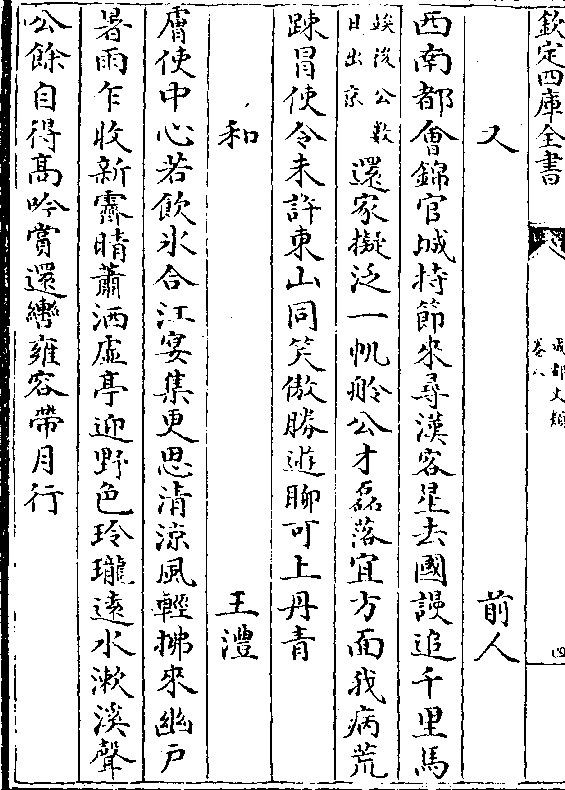 欽定四庫全書
成都文類
卷八
四
又 前人
西南都會錦官城持節來尋漢客星去國謾追千里馬
後公數
日出京
還家擬泛一帆舲公才磊落宜方面我病荒
踈冒使令未許東山同笑傲勝遊聊可上丹青
和 王澧
膺使中心若飲氷合江宴集更思清涼風輕拂來幽戶
暑雨乍收新霽晴蕭洒虛亭迎野色玲瓏遠水漱溪聲
公餘自得髙吟賞還轡雍容帶月行